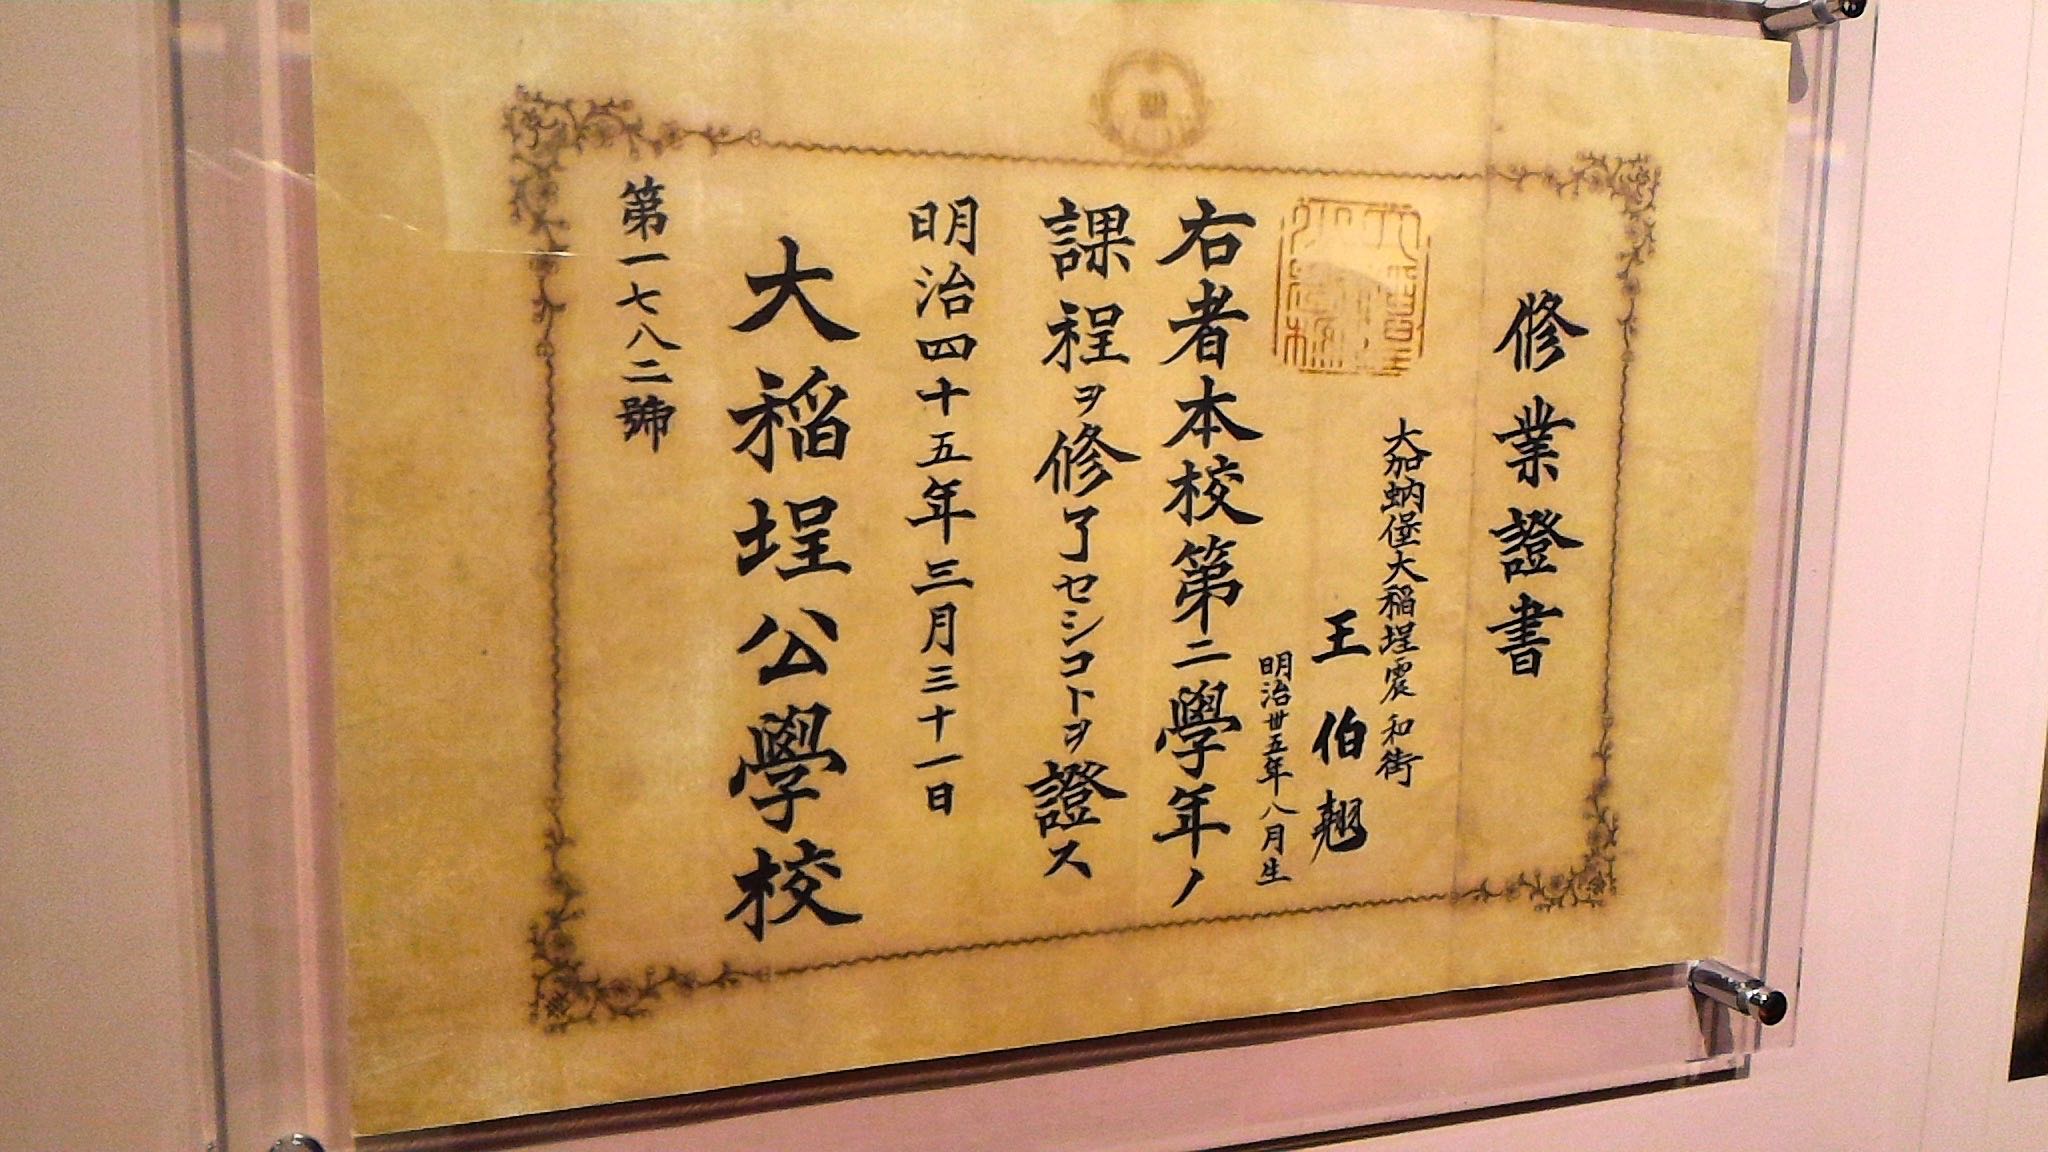 修業證書
大加蚋堡大稻埕震和街
王伯翹
明治卅五年八月生
右者本校第二學年ノ
課程ヲ修了セシコトヲ證ス
明治四十五年三月三十一日
大稻埕公學校
第一七八二號